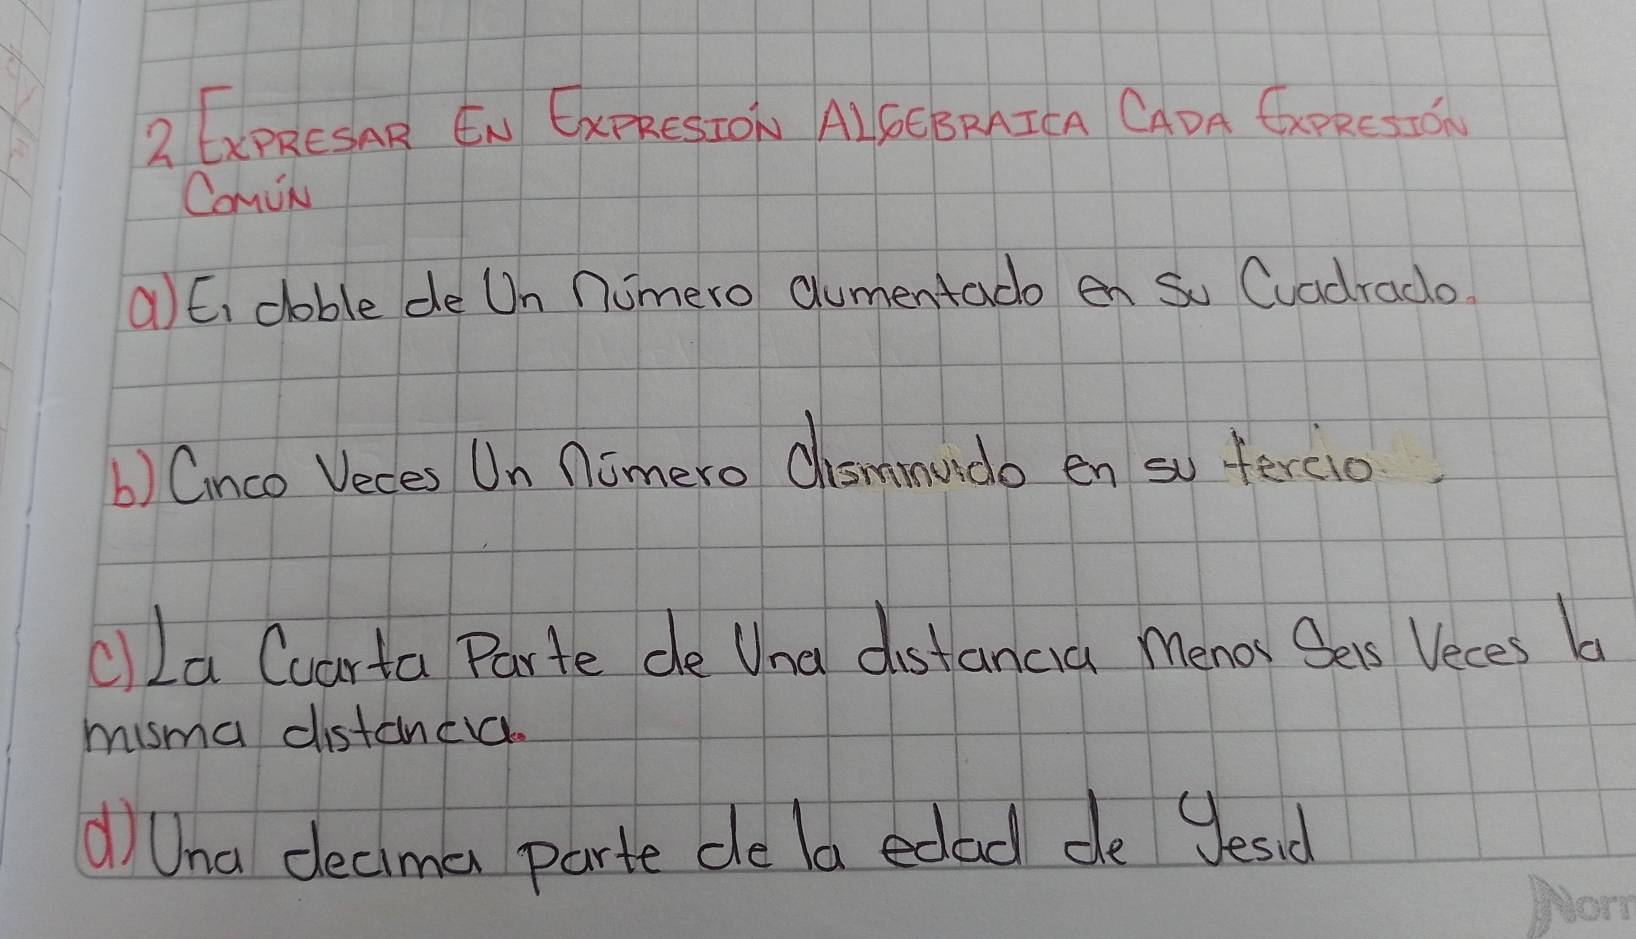 2 EXPRESAR EN EXPRESIÓN ALGEBRAICA CADA EXPRESIÓN
COMÚN
a) El doble de Un número aumentado en su Cuadrado.
b) Cinco Veces Un número disminuido en su tercio.
c) La Cuarta Parte de Una distancia menos Seis Veces la
misma distancia.
d) Una decima parte de la edad de Yesid
Norm